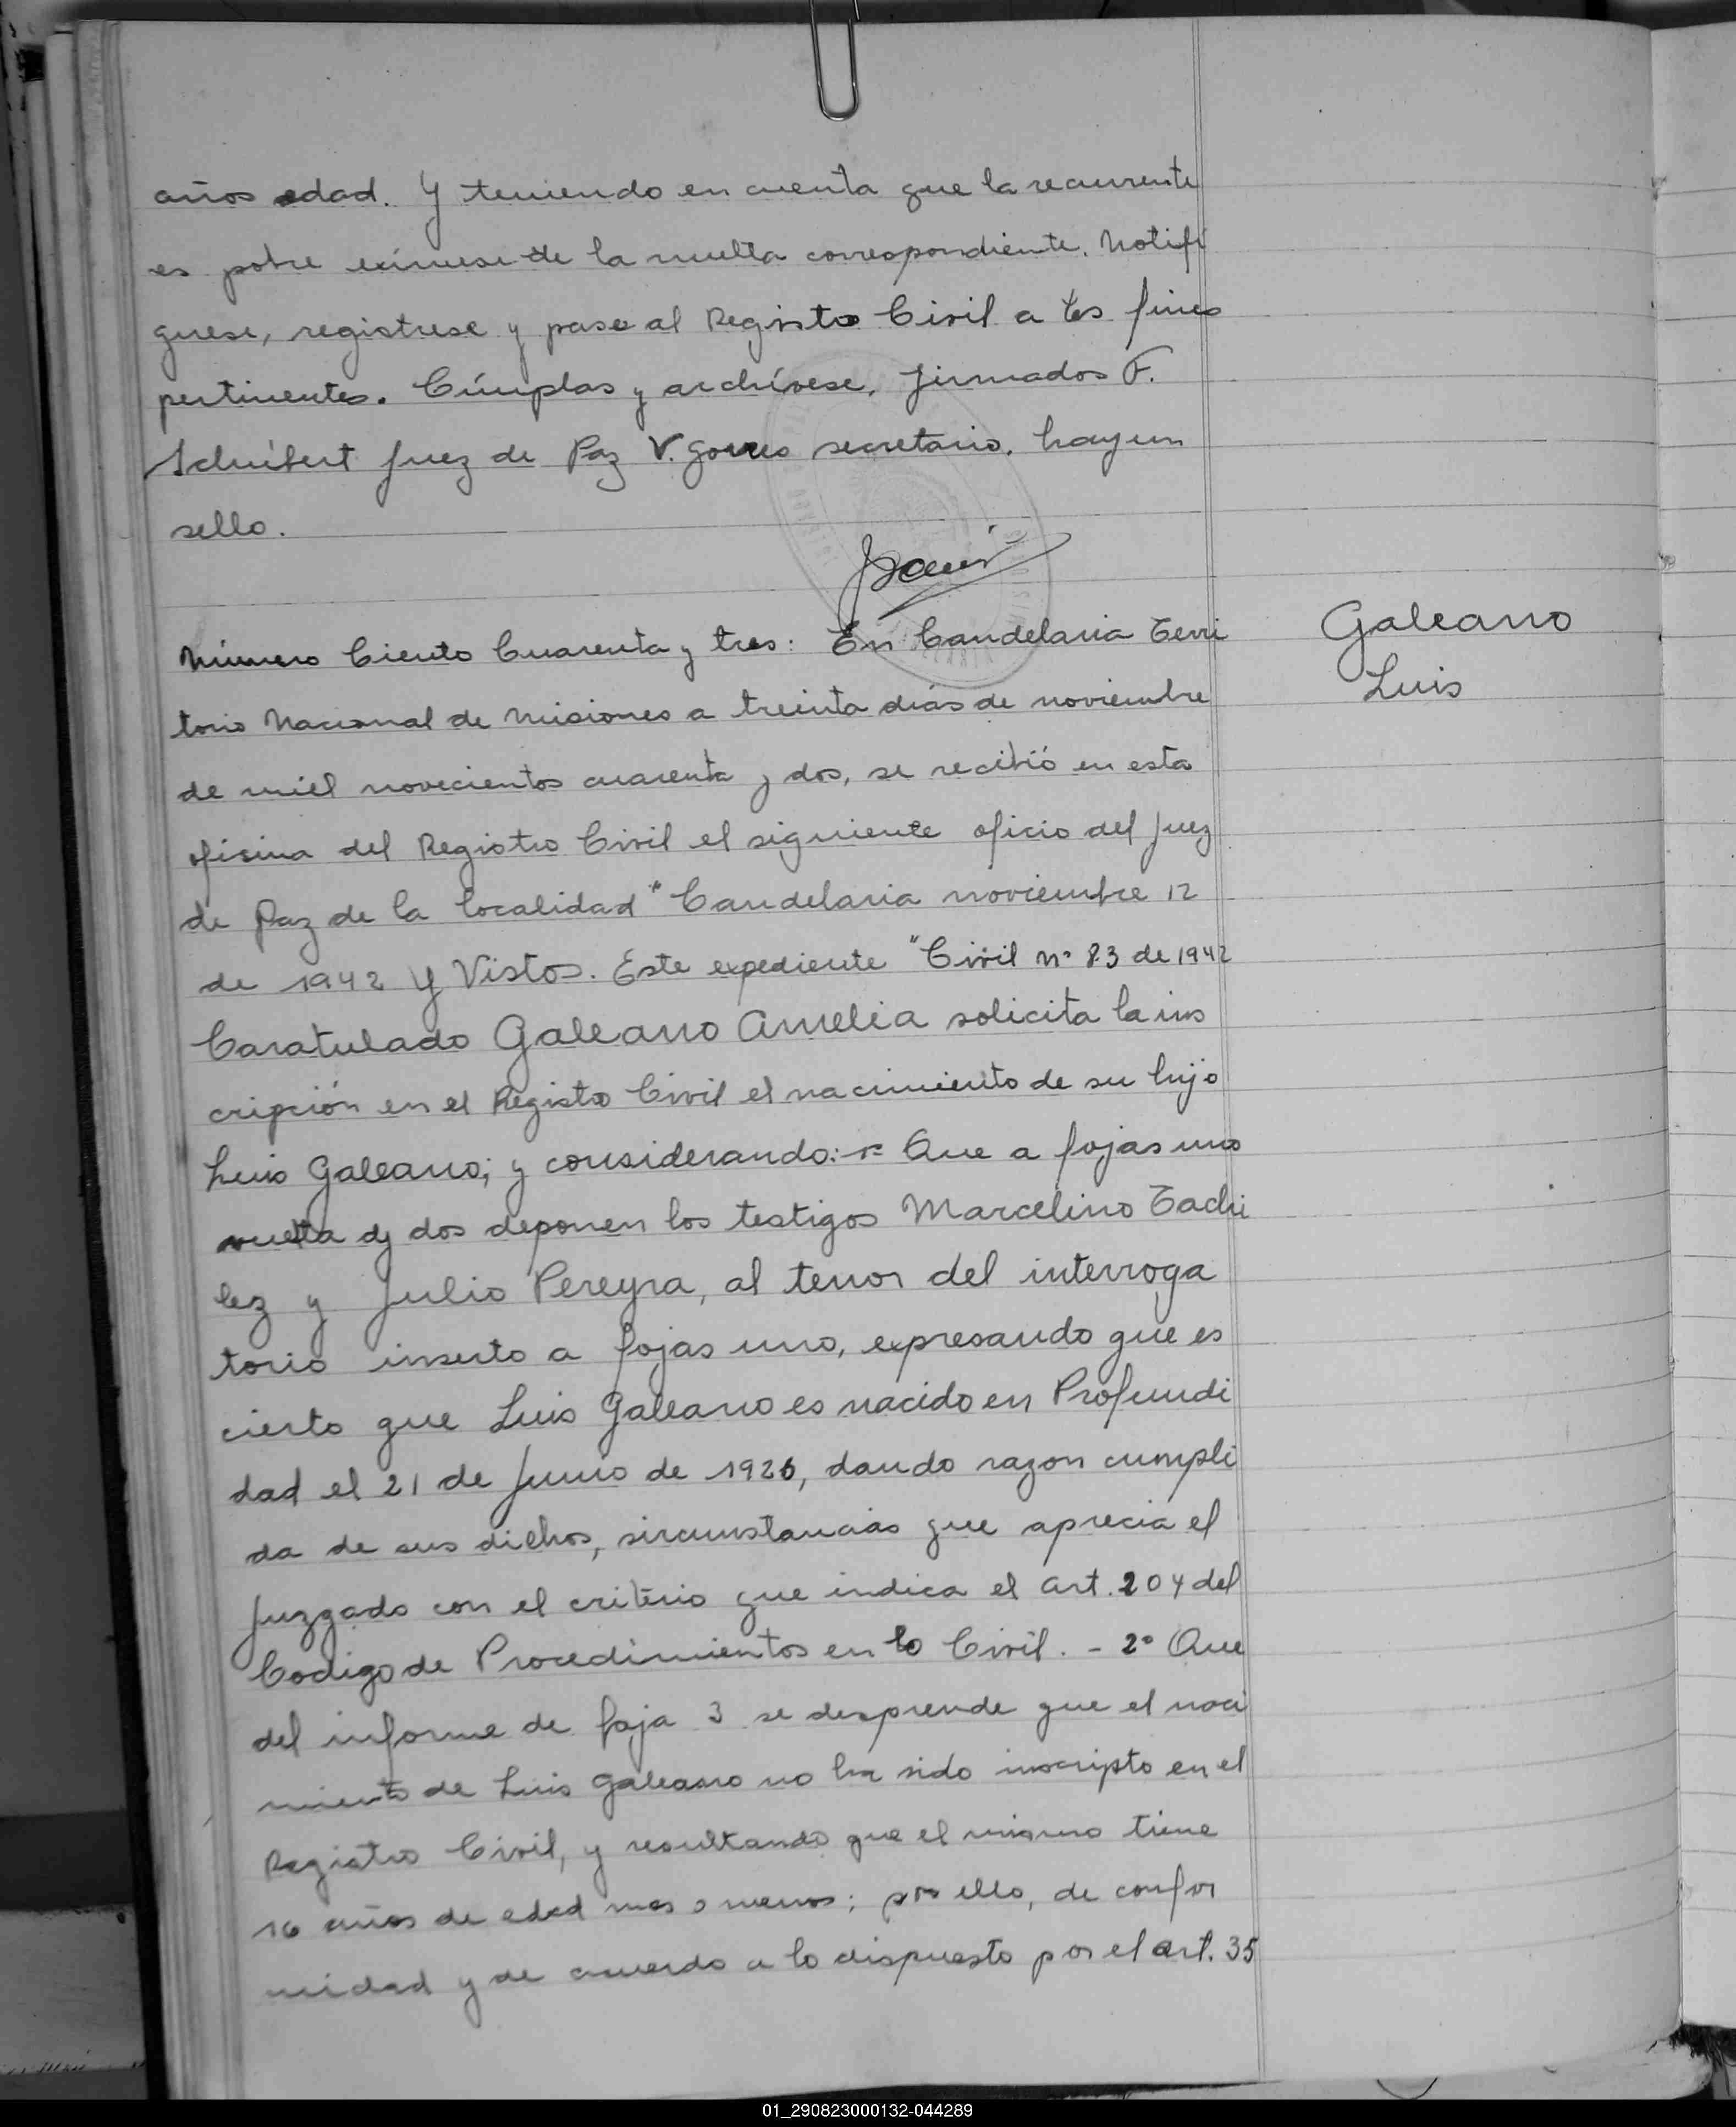 años edad. Y teniendo en cuenta que la recurrente
es pobre exímese de la multa correspondiente. Notifí
quese, registrese y pase al Registro Civil a los fines
pertinentes. Cúmplas y archívese, firmados F.
Schubert Juez de Paz V. secretario. hay un
sello.
Número Ciento Cuarenta y tres: En Candelaria Terri
torio Nacional de Misiones a treinta dias de noviembre
de miel novecientos cuarenta y dos, se recibió en esta
oficina del Registro Civil el siguiente oficio del Juez
de Paz de la localidad "Candelaria noviembre 12
de 1942 Y Vistos. Este expediente "Civil nº 83 de 1942
Caratulado Galeano Amelia solicita la ins
cripción en el Registro Civil el nacimiento de su hijo
Luis Galeano; y considerando:- 1º Que a fojas uno
vuelta y dos deponen los testigos Marcelino Tachi
lez y Julio Pereyra, al tenor del interroga
torio inserto a fojas uno, expresando que es
cierto que Luis Galeano es nacido en Profundi
dad el 21 de Junio de 1926, dando razon cumpli
da de sus dichos, sircunstancias que aprecia el
Juzgado con el criterio que indica el art. 204 del
Codigo de Procedimientos en lo Civil. - 2º Que
del informe de foja 3 se desprende que el naci
miento de Luis Galeano no ha sido inscripto en el
Registro Civil, y resultando que el mismo tiene
16 años de edad mas o menos; por ello, de confor
midad y de acuerdo a lo dispuesto por el art. 35
Galeano
Luis
01_290823000132-044289